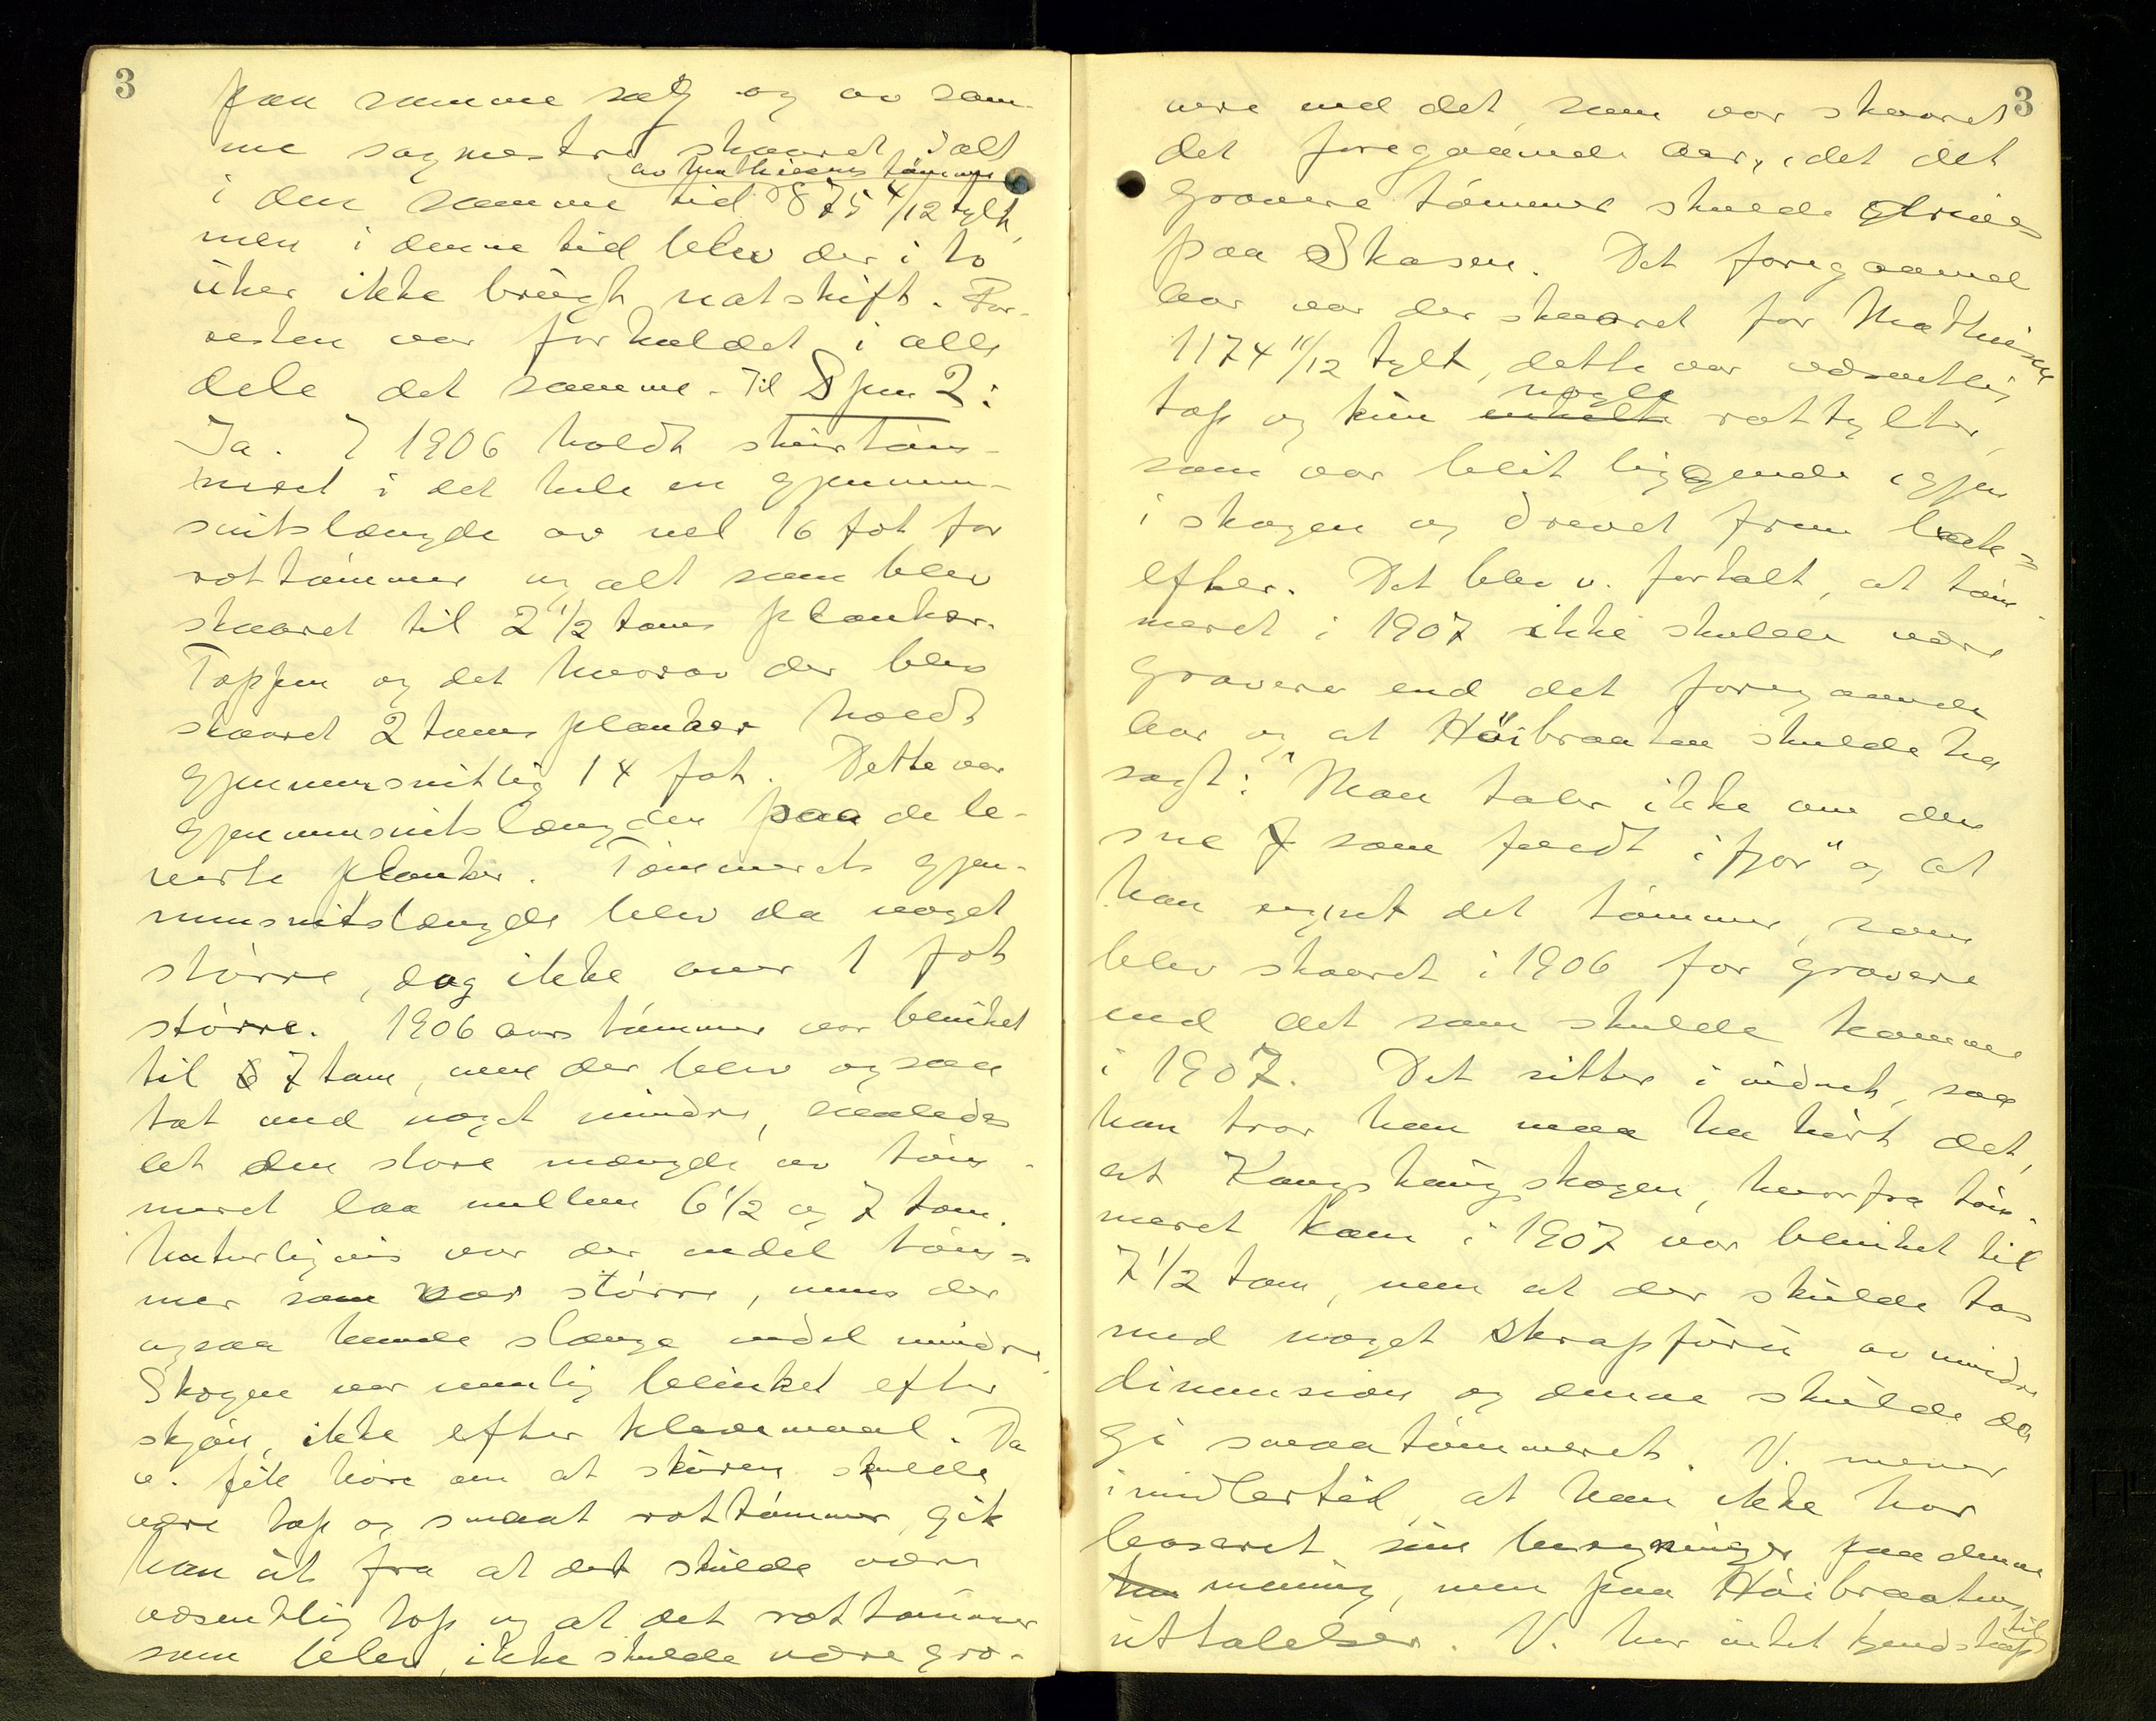 3
paa samme sag og av sam-
me sagmestre skaaret ialt
av Mathiesens tømmer
i den samme tid 875 4/12 tylt,
men i denne tid blev der i to
uker ikke brugt natskift. For-
resten var forholdet i alle
dele det samme. Til Spm 2:
Ja. I 1906 holdt skurtøm-
meret i det hele en gjennem-
snitslængde av vel 16 fot for
rottømmer og alt som blev
skaaret til 2 1/2 toms planker.
Toppen og det hvorav der blev
skaaret 2 toms planker holdt
gjennemsnitlig 14 fot. Dette var
gjennemsnitslængden paa de le-
verte planker. Tømmerets gjen-
nemsnitslængde blev da noget
større, dog ikke over 1 fot
større. 1906 aars tømmer var blinket
til 7 tom, men der blev ogsaa
tat med noget mindre, saaledes
at den store mængde av tøm-
meret laa mellem 6 1/2 og 7 tom.
Naturligvis var der endel tøm-
mer som var større, mens der
ogsaa kunde slænge endel mindre.
Skogen var nemlig blinket efter
skjøn, ikke efter klavemaal. Da
v. fik høre om at skuren skulde
være top og smaat rottømmer, gik
han ut fra at det skulde være
væsentlig top og at det rottømmer
som blev, ikke skulde være gro-
3
vere end det, som var skaaret
det foregaaende aar, idet det
grovere tømmer skulde
paa Skasen. Det foregaaende
aar var der skaaret for Mathiesen
1174 11/12 tylt, dette var væsentlig
nogle
top og kun enkelte rottylter,
som var blit liggende igjen
i skogen og drevet frem bak-
efter. Det blev v. fortalt, at tøm
meret i 1907 ikke skulde være
grovere end det foregaaende
aar og at Høibraaten skulde ha
sagt: "Man taler ikke om den
sne som faldt ifjor" og at
han regnet det tømmer, som
blev skaaret i 1906 for grovere
end det som skulde komme
i 1907. Det sitter i vidnet, saa
han tror han maa ha hørt det,
at Kongshaugskogen, hvorfra tøm-
meret kom i 1907 var blinket til
7 1/2 tom, men at der skulde tas
med noget skrapfuru av mindre
dimension og denne skulde da
gi smaatømmeret. V. mener
imidlertid at han ikke har
baseret sine beregninger paa denne
mening, men paa Høibraatens
uttalelser. V. har intet kjendskap
til